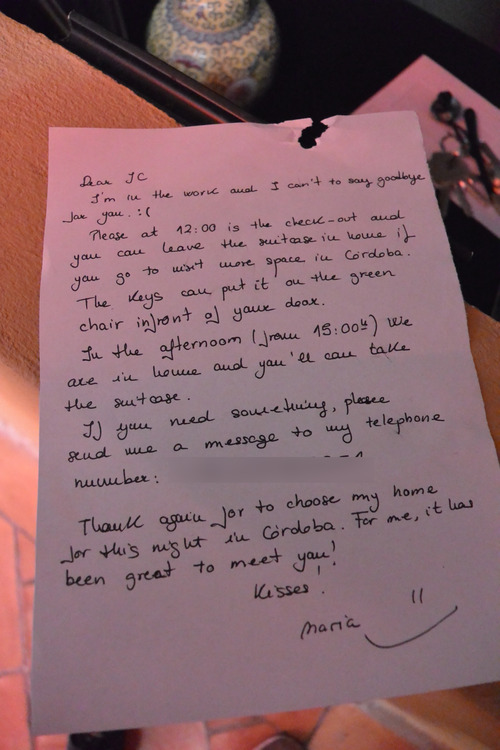 Dear JC
I'm in the work and I can't to say goodbye
for you. :(
Please at 12:00 is the check-out and
you can leave the suitcase in home if
you go to visit more space in Córdoba.
The Keys can put it on the green
chair infront of your door.
In the afternoon (from 15:00h) We
are in home and you'll can take
the suitcase.
If you need something, please
send me a message to my telephone
number:
Thank again for to choose my home
for this night in Córdoba. For me, it has
been great to meet you!
Kisses!
Maria